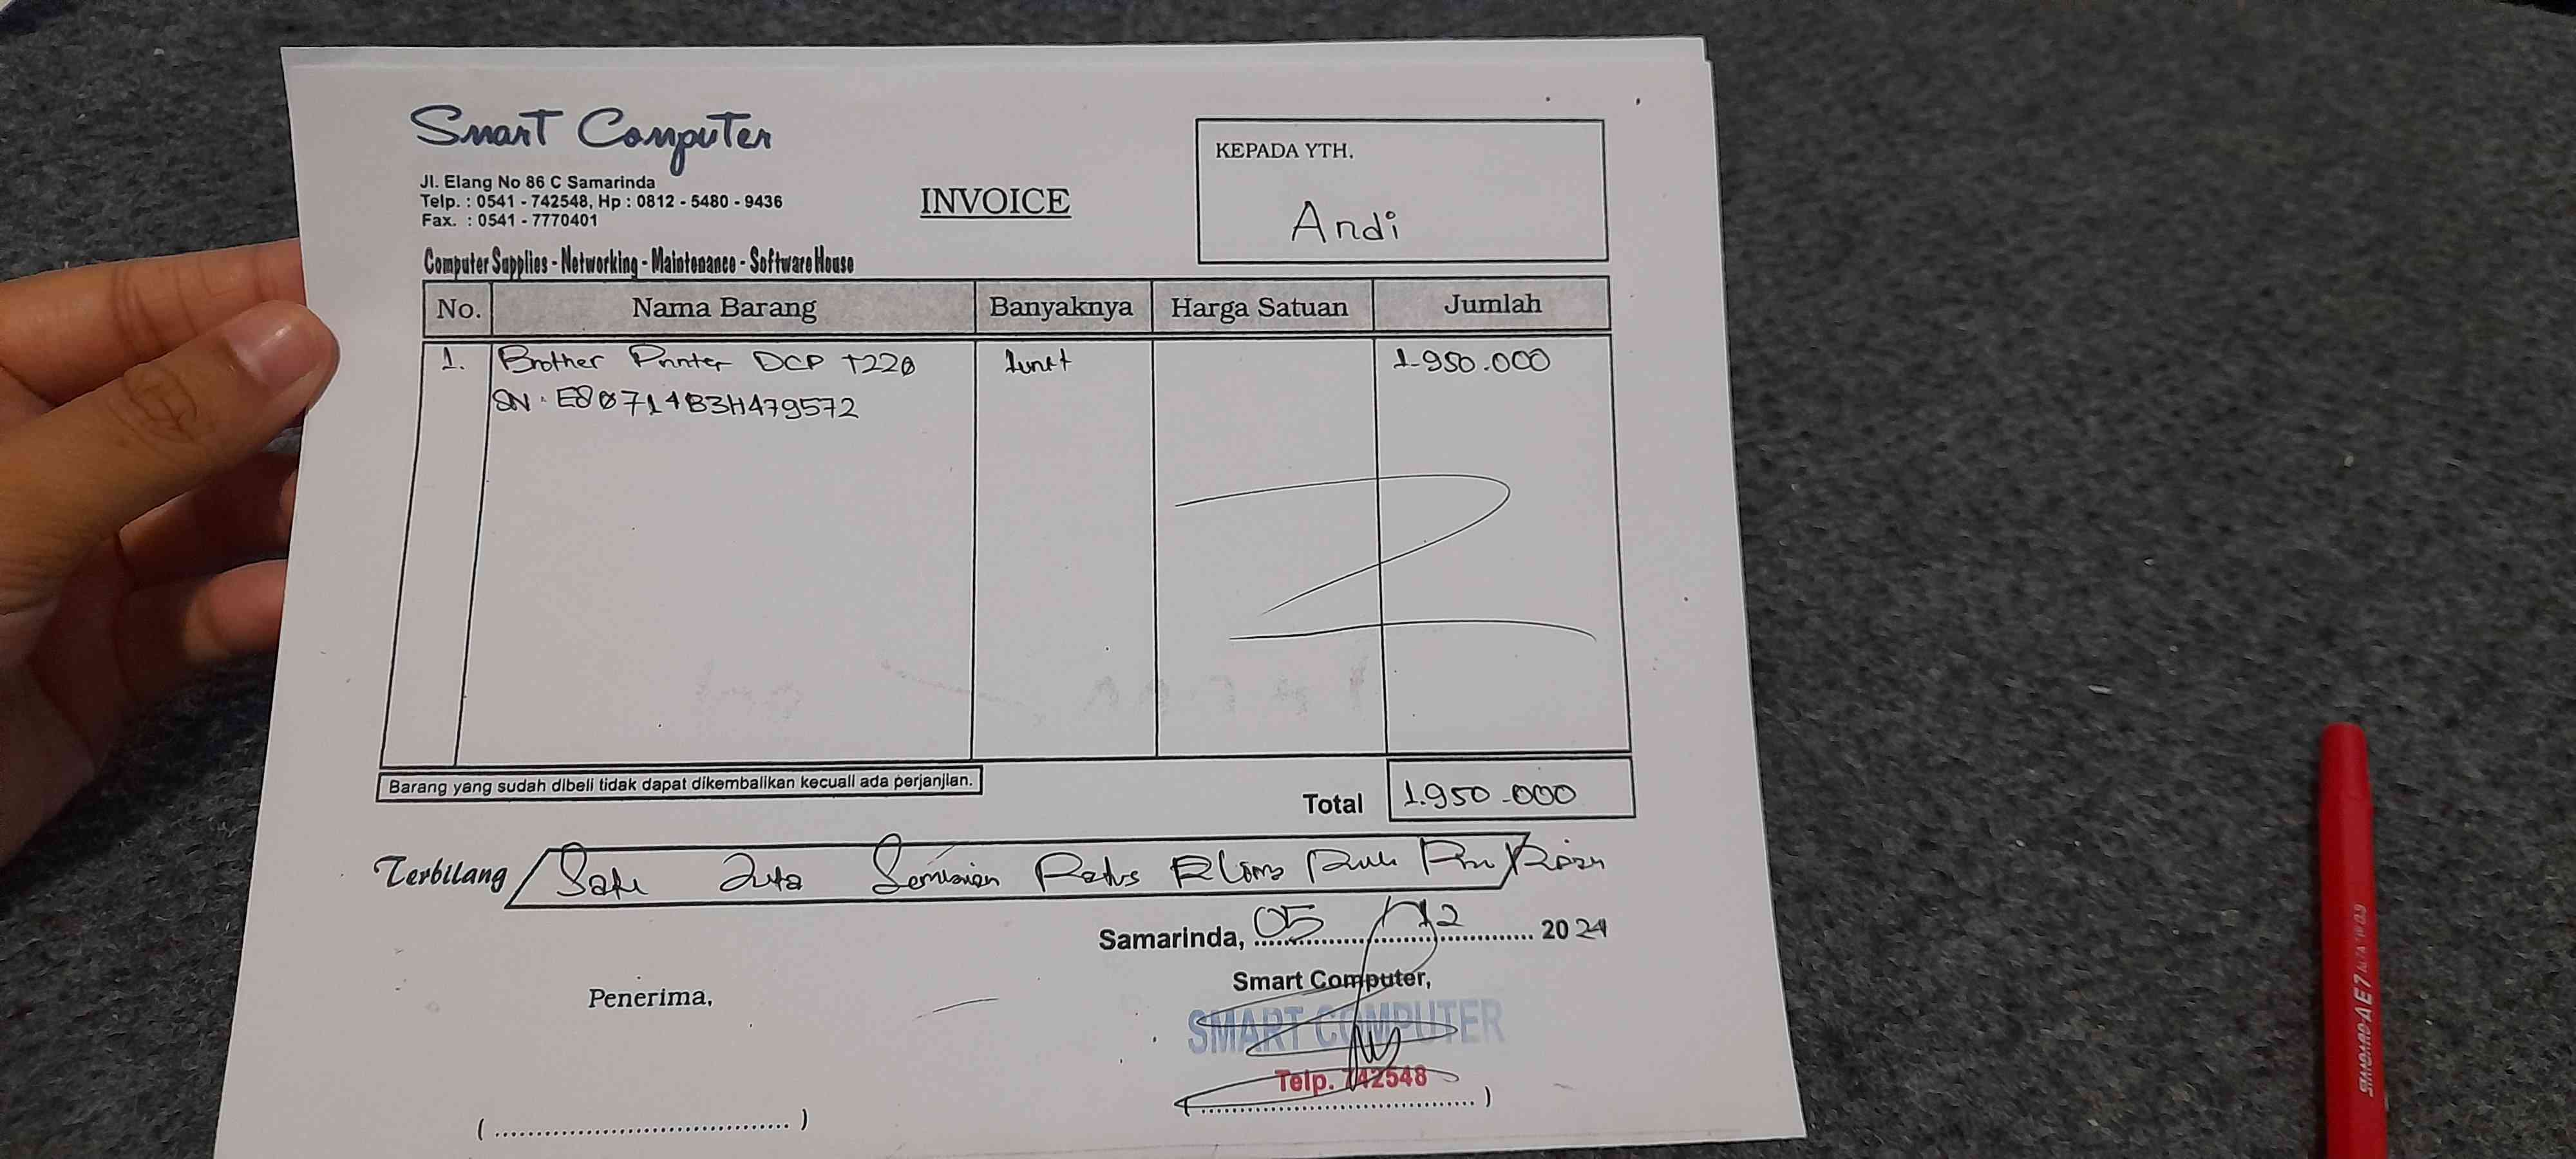 Smart Computer
Jl. Elang No 86 C Samarinda
Telp. : 0541 - 742548, Hp : 0812 - 5480 - 9436
Fax. : 0541 - 7770401
Computer Supplies - Networking - Maintenance - Software House
INVOICE
KEPADA YTH.
Andi
No. Nama Barang Banyaknya Harga Satuan Jumlah
1. Brother Printer DCP T220 1unit 1.950.000
SN. E80714B3H479572
Barang yang sudah dibeli tidak dapat dikembalikan kecuali ada perjanjian.
Total 1.950.000
Terbilang Satu Juta Sembilan Ratus Lima Puluh Ribu Rupiah
Samarinda, 05 / 12 2024
Smart Computer,
SMART COMPUTER
Telp. 742548
Penerima,
(....................................)
(....................................)
STANDARD AE7 ALFA TIP 0.5